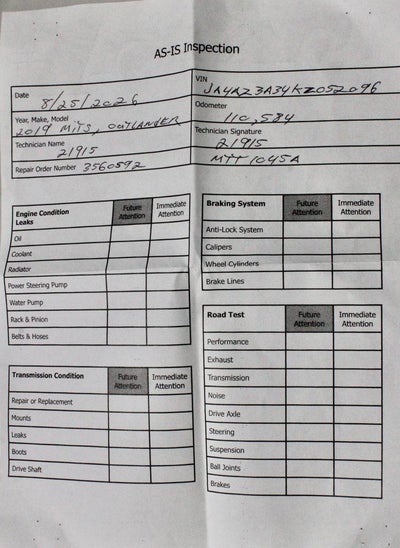 AS-IS Inspection
Date 8/25/2026
Year, Make, Model 2019 MITS, OUTLANDER
Technician Name 21915
Repair Order Number 3560592
VIN JA4AZ3A34KZ052096
Odometer 110,584
Technician Signature 21915
MTT1045A
Engine Condition Future Attention Immediate Attention
Leaks
Oil
Coolant
Radiator
Power Steering Pump
Water Pump
Rack & Pinion
Belts & Hoses
Transmission Condition Future Attention Immediate Attention
Repair or Replacement
Mounts
Leaks
Boots
Drive Shaft
Braking System Future Attention Immediate Attention
Anti-Lock System
Calipers
Wheel Cylinders
Brake Lines
Road Test Future Attention Immediate Attention
Performance
Exhaust
Transmission
Noise
Drive Axle
Steering
Suspension
Ball Joints
Brakes